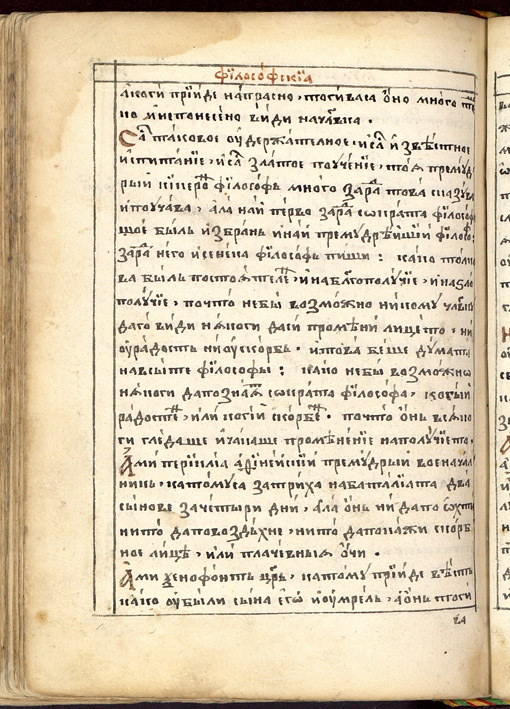 фїлосо́фскїа
акоги прїи́де напрасно, тогива са оно много тѣш
ко и непонесено види начл҃вка.
Са̀ таковое оудержателное, и са̀ и́звѣстное
испитанїе, и са̀ златое поученїе, тоѧ премꙋд
рый кикеро филосо́фь много зара́ди това сказꙋва
и поучава, ала най перво зара́ди сократа филосо́ф
що е быль и́збрань и най премꙋдрѣйшїй филосо́ф.
зара́ди него и сенека фїлосо́фь пиши: како толи
ва быль постоѧтеле, и на благополучїе, и на ѕло
получїе, почто небы возможно никому чл҃вкꙋ
да го види нѧкоги да си промѣни лицето, ни
оу радость ни оу скорбь. и това беше дꙋмата
на всыте фїлосо́фы: како небы возможно
нѧкоги да познаѧ сократа фїлосо́фа, когы й
радосте, или коги й скорбе. почто онь всѧко
ги гледаше и чакаше промѣненїе на получїето.
Ами перїклїа а́финейскїй премꙋдрый военачал
никь, като мꙋ са затриха на баталїата два
сынове за четыри дни, ала онь ни да го ѡхти
нито да повоздыхне, нито да покажи скорб
ное лицѐ, или плачевныѧ о́чи.
Ами ѯенофонть цр҃ь, като му прїиде вѣсть
како оубыли сына его̀ и оумрель, а онь тоги